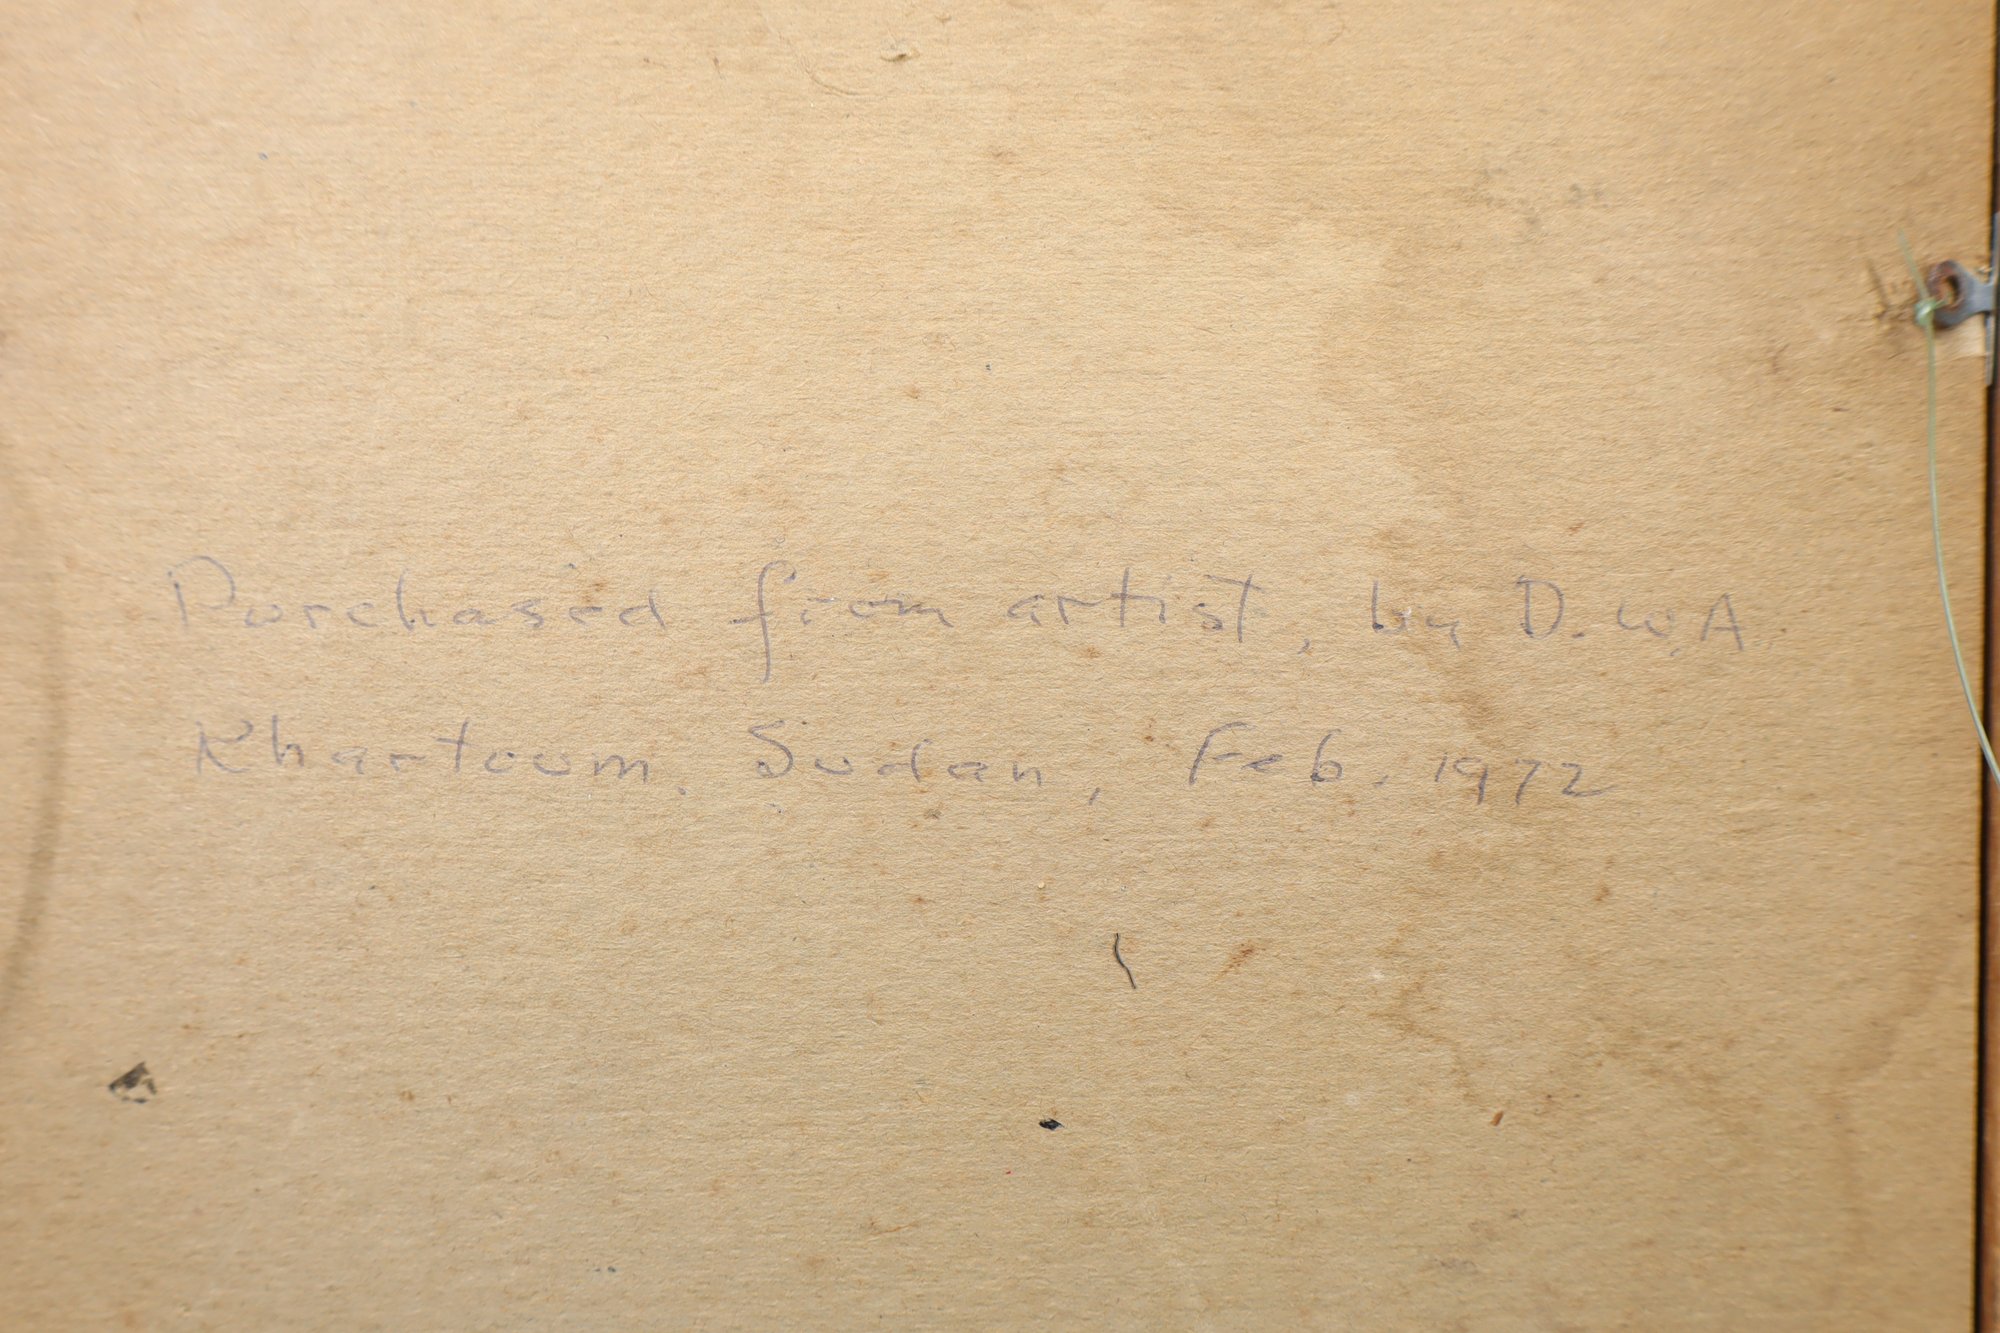 Purchased from artist, by D.W.A.
Khartoum, Sudan, Feb. 1972